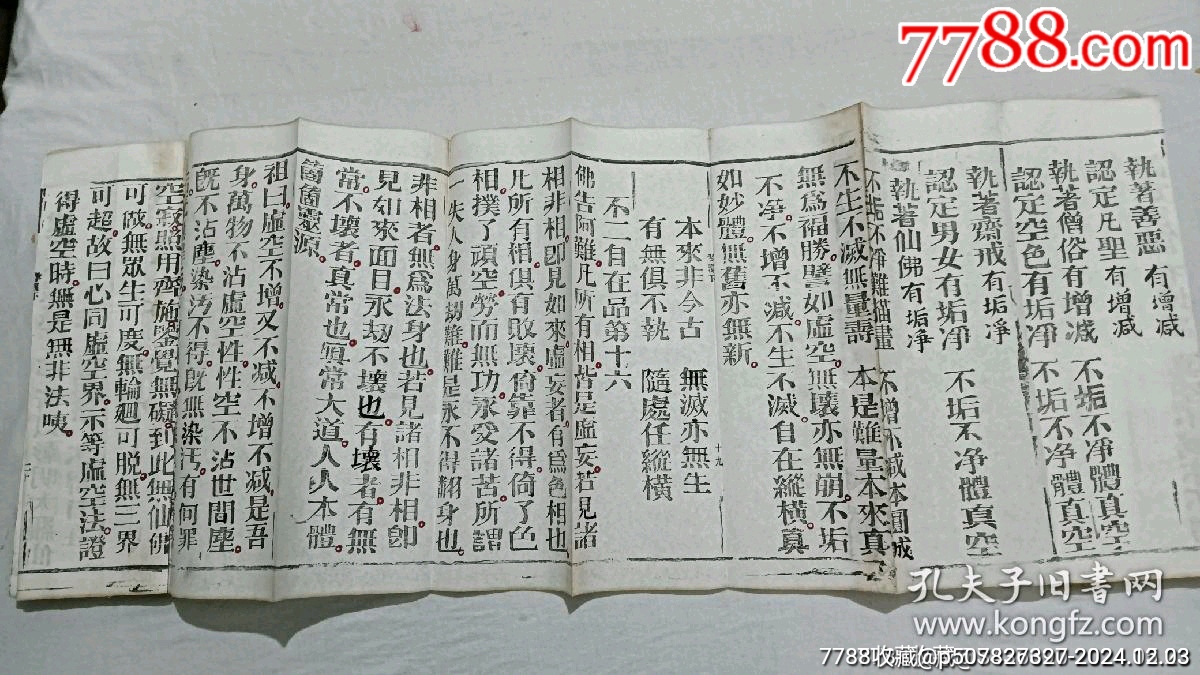 執著善惡 有增减
認定凡聖 有增减
執著僧俗有增减 不垢不凈體真空
認定空色有垢凈 不垢不净體真空
執著齋戒有垢净
認定男女有垢凈 不垢不净體真空
執著仙佛有垢净
不垢不净難描畫 不增不减本圓成
不生不滅無量壽 本是難量本來真
無爲福勝譬如虛空無壞亦無崩不垢
不净不增不减不生不滅自在縱橫真
如妙體無舊亦無新
本來非今古 無滅亦無生
有無俱不執 隨處任縱橫
十九
不二自在品第十六
佛告阿難凡所有相皆是虛妄若見諸
相非相卽見如來虛妄者有爲色相也
凡所有相俱有敗壞倚靠不得倚了色
相撲了頑空勞而無功永受諸苦所謂
一失人身萬刼難難是永不得翻身也
非相者無爲法身也若見諸相非相卽
見如來面目永刼不壞也有壞者有無
常不壞者真常也真常大道人人本體
箇箇靈源
祖曰虛空不增又不减不增不减是吾
身萬物不沾虛空性性空不沾世間塵
旣不沾塵染汚不得旣無染汚有何罪
空寂照用齊施鑒覺無礙到此無仙佛
可做無眾生可度無輪廻可脱無三界
可超故曰心同虛空界示等虛空法證
得虛空時無是無非法咦
7788.com
孔夫子旧书网
www.kongfz.com
7788收藏@p507827327-2024.12.03